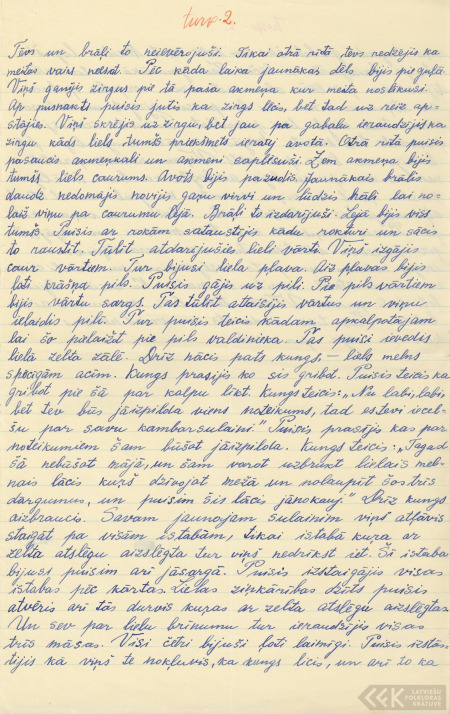 turp. 2.
Tēvs un brāļi to neievērojuši. Tikai otrā rītā tēvs redzējis ka
meitas vairs neesot. Pēc kāda laika jaunākais dēls bijis pieguļā.
Viņš ganījis zirgus pie tā paša akmeņa kur meita noslīkusi.
Ap pusnakti puisis jutis ka zirgs lēcis, bet tad uz reiz ap-
stājies. Viņš skrējis uz zirgu, bet jau pa gabalu ieraudzījis ka
zirgu kāds liels tumšs priekšmets ierauj avotā. Otrā rītā puisis
pasaucis akmeņkali un akmeni saplēsuši. Zem akmeņa bijis
tumšs liels caurums. Avots bijis pazudis. Jaunākais brālis
daudz nedomājis novijis garu virvi un lūdzis brāli lai no-
laiž viņu pa caurumu lejā. Brāļi to izdarījuši. Lejā bijis viss
tumšs. Puisis ar rokām sataustījis kādu rokturi un sācis
to raustīt. Tūlīt atdarījušies lieli vārti. Viņš izgājis
caur vārtiem. Tur bijusi liela pļava. Aiz pļavas bijis
ļoti krāšņa pils. Puisis gājis uz pili. Pie pils vārtiem
bijis vārtu sargs. Tas tūlīt ataisījis vārtus un viņu
ielaidis pilī. Tur puisis teicis kādam apkalpotājam
lai šo palaižot pie pils valdinieka. Tas puici ievedis
lielā zelta zālē. Drīz nācis pats kungs, — labs melns
spožām acīm. Kungs prasījis ko sis gribot. Puisis teicis ka
gribot pie šā par kalpu līkt. Kungs teicis: „Nu labi, labi,
bet tev būs jāizpilda viens noteikums, tad es tevi iecel-
šu par savu kambarsulaini." Puisis prasījis kas par
noteikumiem šam būšot jāizpilda. Kungs teicis: „Tagad
šā nebūšot mājā, un šam varot uzbrukt lielais mel-
nais lācis kuŗš dzīvojot mežā un nolaupīt šos trīs
dārgumus, un puisim šis lācis jānokauj." Drīz kungs
aizbraucis. Savam jaunajam sulainim viņš atļāvis
staigāt pa visām istabām, tikai istabā kuŗa ar
zelta atslēgu aizslēgta tur viņš nedrīkst iet. Šī istaba
bijusi puisim arī jāsargā. Puisis izstaigājis visas
istabas pēc kārtas. Lielas ziņkārības dzīts puisis
atvēris arī tās durvis kuŗas ar zelta atslēgu aizslēgtas.
Un sev par lielu brīnumu tur ieraudzījis visas
trīs māsas. Visi četri bijuši ļoti laimīgi. Puisis izstās-
tījis kā viņš te nokļuvis, ka kungs licis, un arī to ka
LATVIEŠU
FOLKLORAS
KRĀTUVE